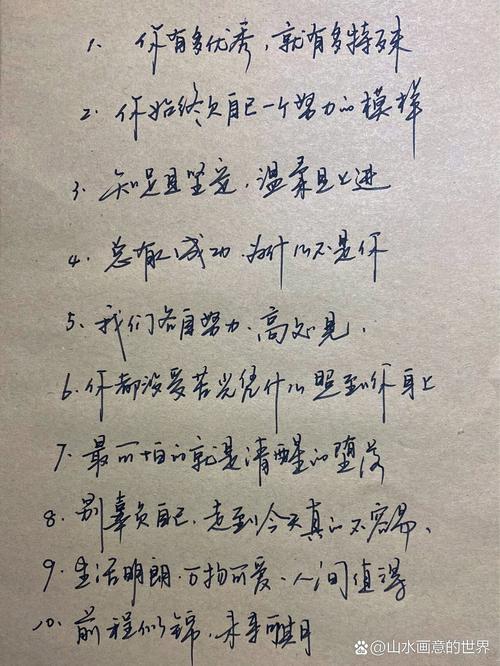 1. 你有多优秀，就有多特殊
2. 你始终欠自己一个努力的模样
3. 知足且坚定，温柔且上进
4. 总有人成功.为什么不是你
5. 我们各自努力.高处见.
6. 你都没受苦光凭什么照到你身上
7. 最可怕的就是清醒的堕落
8. 别辜负自己.走到今天真的不容易、
9. 生活明朗.万物可爱.人间值得
10. 前程似锦.未来可期
@山水画意的世界